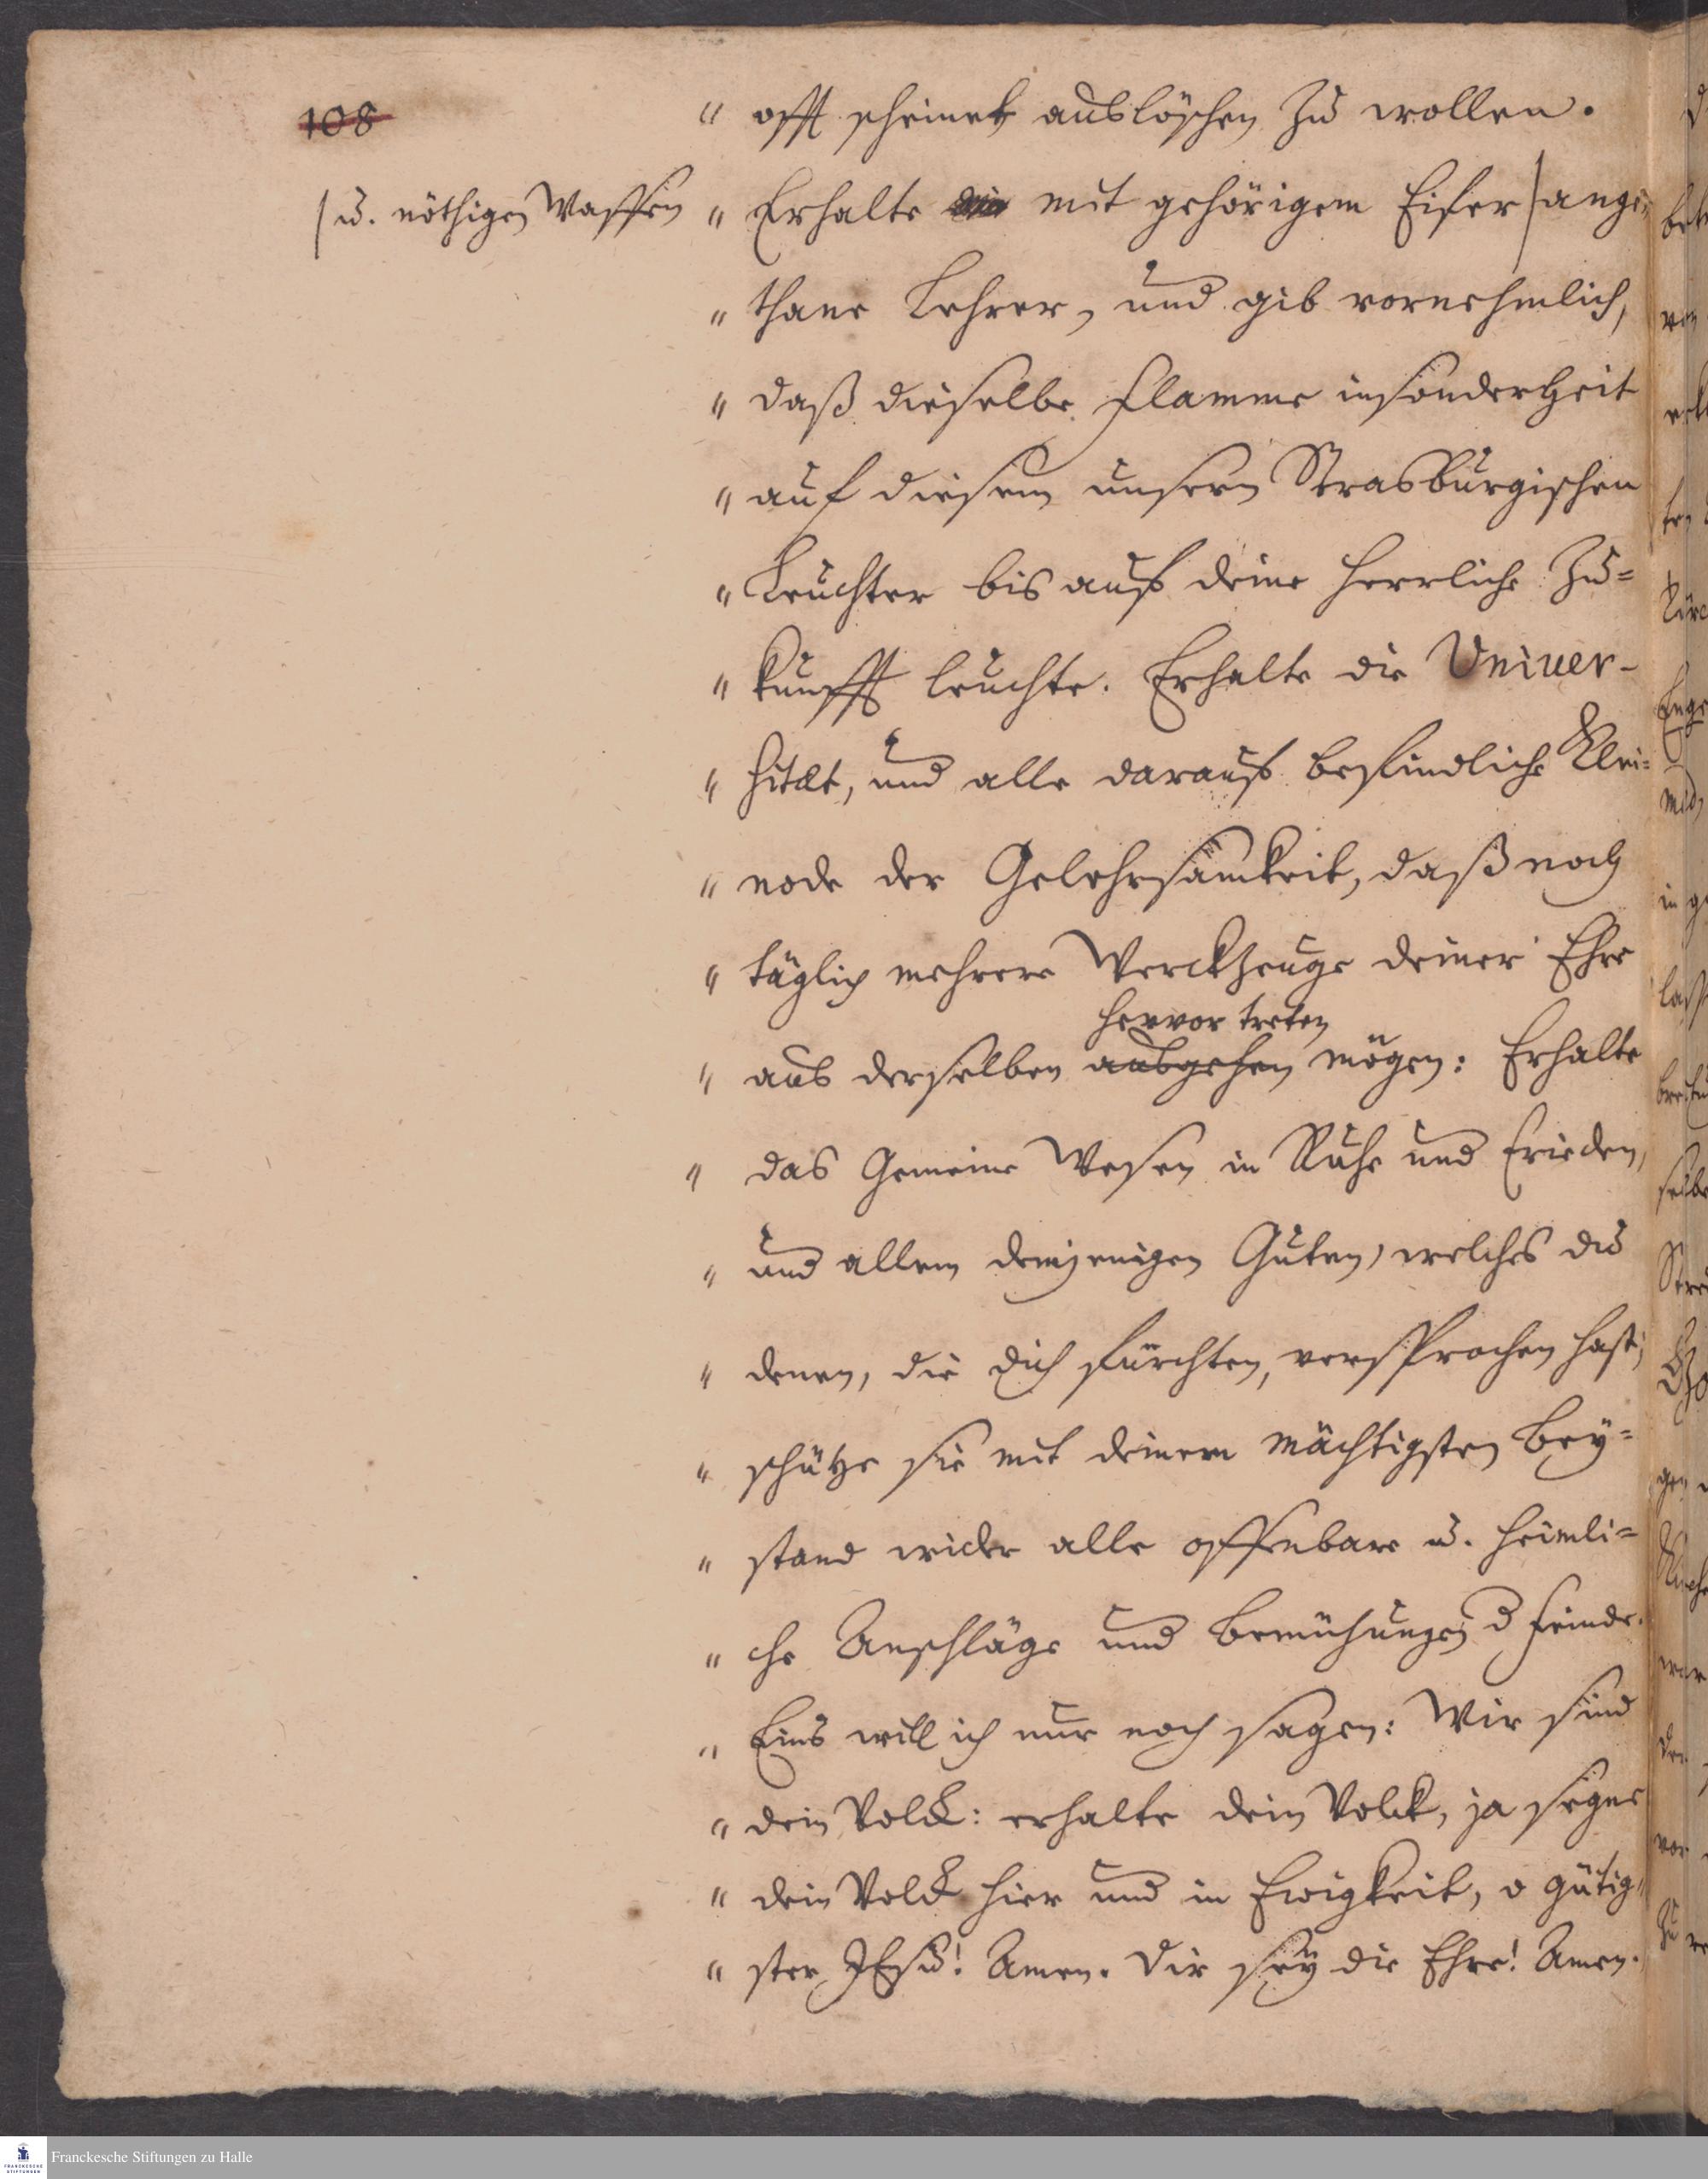 108
" offt scheinet auslöschen zu wollen.
/ u. nöthigen Waffen
" Erhalte mit gehörigem Eifer / ange-
" thane Lehrer, und gib vornehmlich,
" daß dieselbe Flamme insonderheit
" auf diesem unsern Strasburgischen
" Leuchter bis auf deine herrliche Zu=
" kunfft leuchte. Erhalte die Univer-
" sitæt, und alle darauf befindliche Klei=
" node der Gelehrsamkeit, daß noch
" täglich mehrere Werckzeuge deiner Ehre
hervor treten
" aus derselben ausgehen mögen: Erhalte
" das Gemeine Wesen in Ruhe und Frieden,
" und allem demjenigen Guten, welches du
" denen, die dich fürchten, versprochen hast;
" schütze sie mit deinem mächtigsten Bey=
" stand wider alle offenbare u. heimli=
" che Anschläge und Bemühungen d Feinde.
" Eins will ich nur noch sagen: Wir sind
" dein Volck: erhalte dein Volck, ja segne
" dein Volck hier und in Ewigkeit, o gütig=
" ster JEsu! Amen. Dir sey die Ehre! Amen.
Franckesche Stiftungen zu Halle